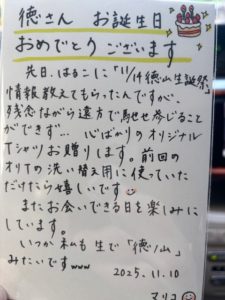 徳さん　お誕生日
おめでとうございます
先日、はるこに「11/14徳山生誕祭」
情報教えてもらったんですが、
残念ながら遠方で馳せ参じること
ができず… 心ばかりのオリジナル
Tシャツお贈りします。前回の
オリTの洗い替え用に使っていた
だけたら嬉しいです
またお会いできる日を楽しみに
しています。
いつか私も生で「徳/山」
みたいですwww
2025.11.10
マリコ